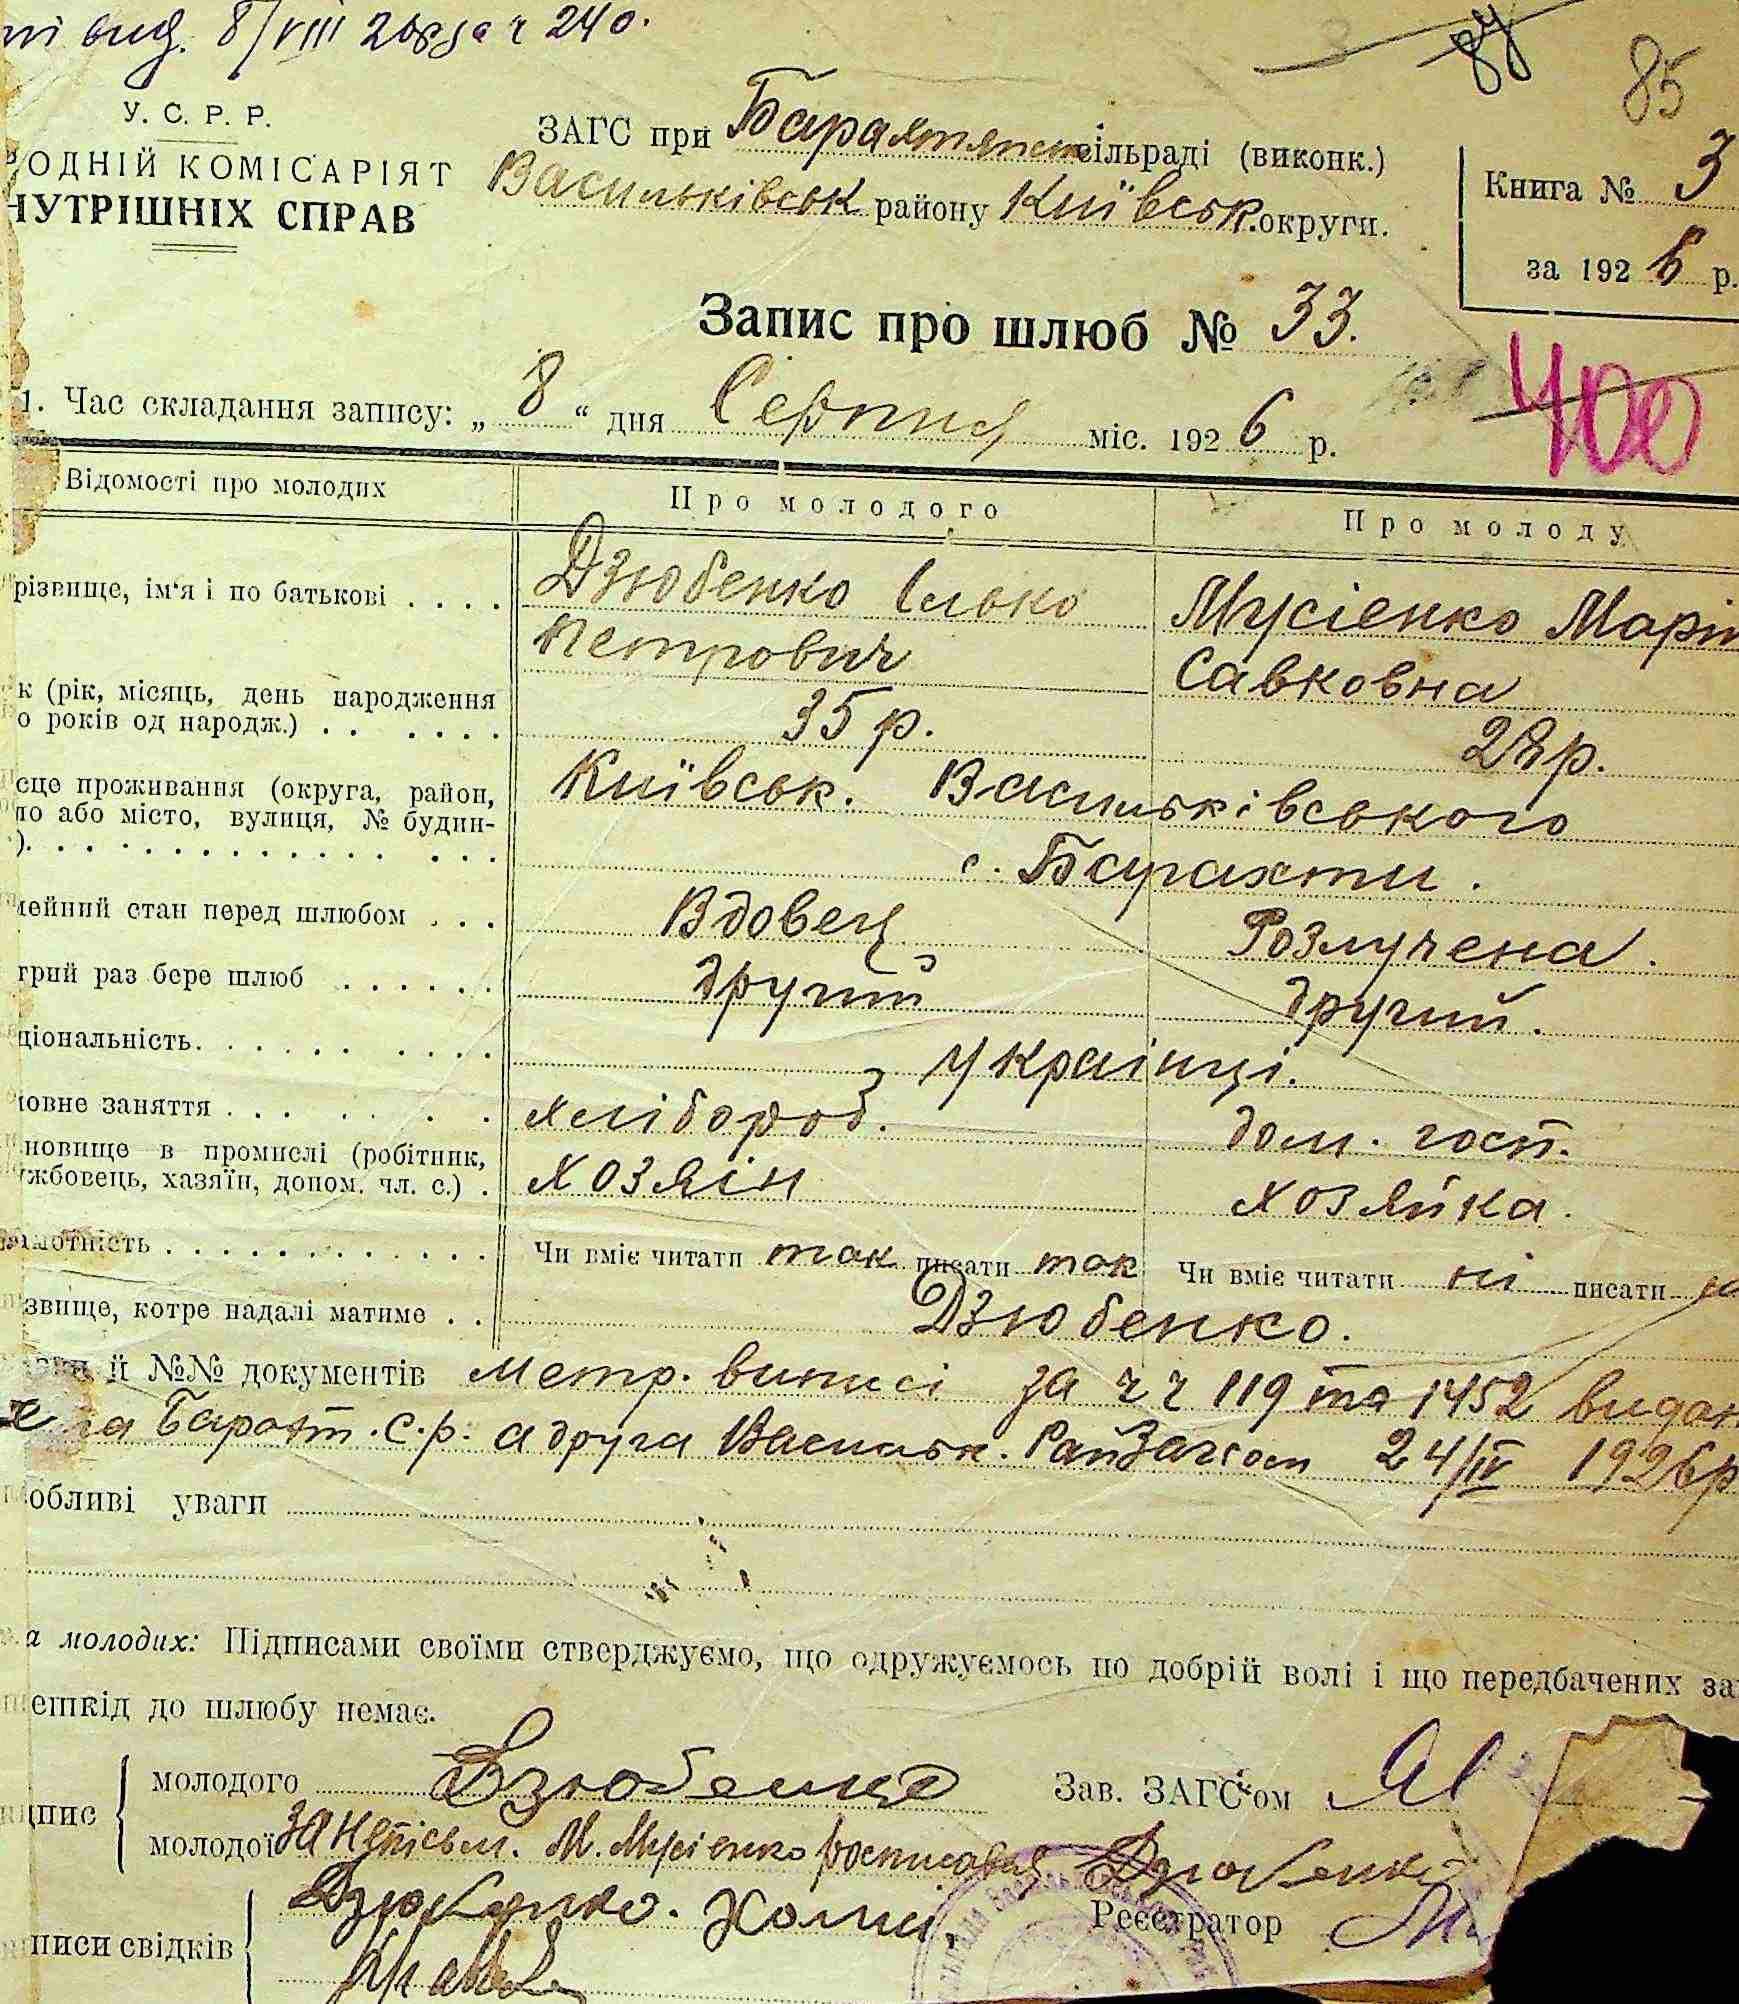 вид. 8/VIII 240.
85
У. С. Р. Р.
ОДНІЙ КОМІСАРІЯТ
НУТРІШНІХ СПРАВ
ЗАГС при Барахтянськ сільраді (виконк.)
Васильківськ району Київськ. округи.
Книга № 3
за 1926 р.
Запис про шлюб № 33.
400
1. Час складання запису: „ 8 “ дня Серпня міс. 1926 р.
Відомості про молодих Про молодого Про молоду
різвище, ім'я і по батькові . . . . Дзюбенко Ілько Мусіенко Марі
Петрович Савковна
к (рік, місяць, день народження
о років од народж.) . . . . . . 35 р. 28 р.
сце проживання (округа, район, Київськ. Васильківського
ло або місто, вулиця, № будин-
). . . с. Барахти.
мейний стан перед шлюбом . . . Вдовец Розлучена.
трий раз бере шлюб . . . . . . другий другий.
ціональність. . . . . . . . . українці.
ловне заняття . . . . . . . хлібороб. дом. госп.
новище в промислі (робітник,
ужбовець, хазяїн, допом. чл. с.) . хозяін хозяйка.
амотність . . . . . . . . . . . . Чи вміє читати так писати так Чи вміє читати ні писати
звище, котре надалі матиме . . Дзюбенко.
й №№ документів метр. виписі за чч 119 та 1452 видан
Барахт. с.р. а друга Васильк. РайЗагсом 24/IV 1926р
обливі уваги
а молодих: Підписами своїми стверджуємо, що одружуємось по добрій волі і що передбачених за
ешкід до шлюбу немає.
дпис
молодого Дзюбенко Зав. ЗАГС'ом
молодої За неписьм. М. Мусіенко росписався Дзюбенко
писи свідків Дзюбенко. Хома,
Реєстратор